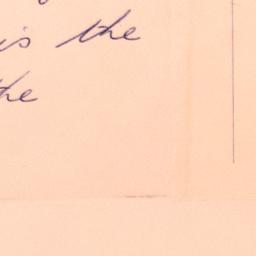 is the
the